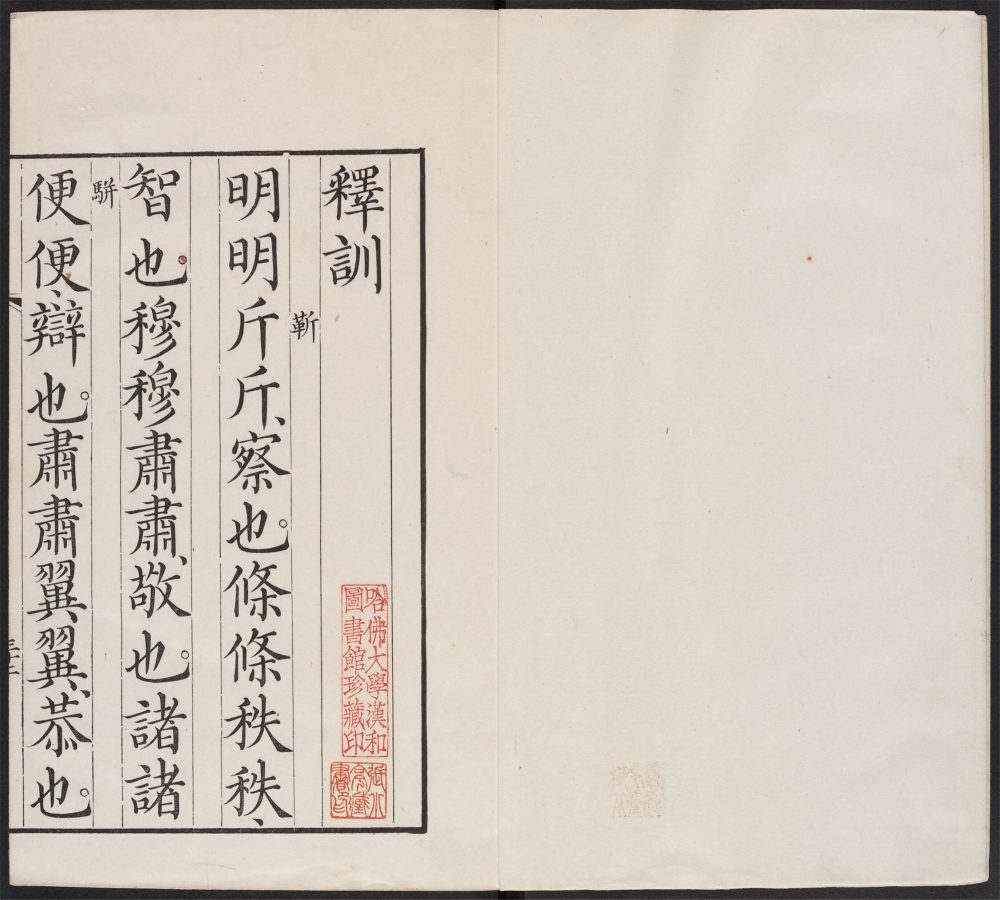 釋訓
靳
明明斤斤、察也。條條秩秩、
智也。穆穆肅肅、敬也。諸諸
駢
便便、辯也。肅肅翼翼、恭也。
哈佛大學漢和
圖書館珍藏印